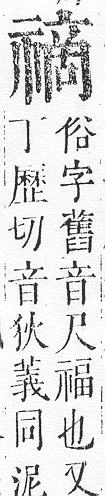 俗字舊音尺福也又
丁歷切音狄義同泥